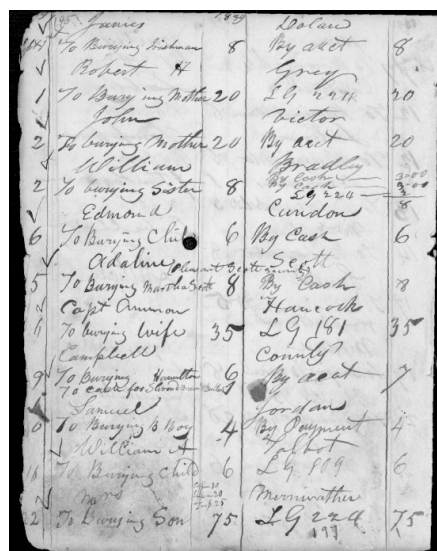 James 1839 Dolan
To Burying Irishman 8 By acct 8
Robert H Grey
1 To Burying Mother 20 LG 224 20
John Victor
2 To burying Mother 20 By acct 20
William Bradley
By Cash 3.00
By Cash
2 To burying Sister 8 LG 224 8
Edmond Curdon
6 To Burying Child 6 By Cash 6
Adaline Scott
5 To Burying Martha Scott 8 By Cash 8
Capt Ammon Hancock
11 To burying Wife 35 LG 181 35
Campbell County
9 To Burying Hamilton 6 By acct 7
To cash for Shroud 1
Samuel Jordan
To Burying B Boy 4 By Payment 4
William A Talbot
To Burying Child 6 LG 809 6
Mrs Merriwather
2 To Burying Son 75 LG 224 75
197